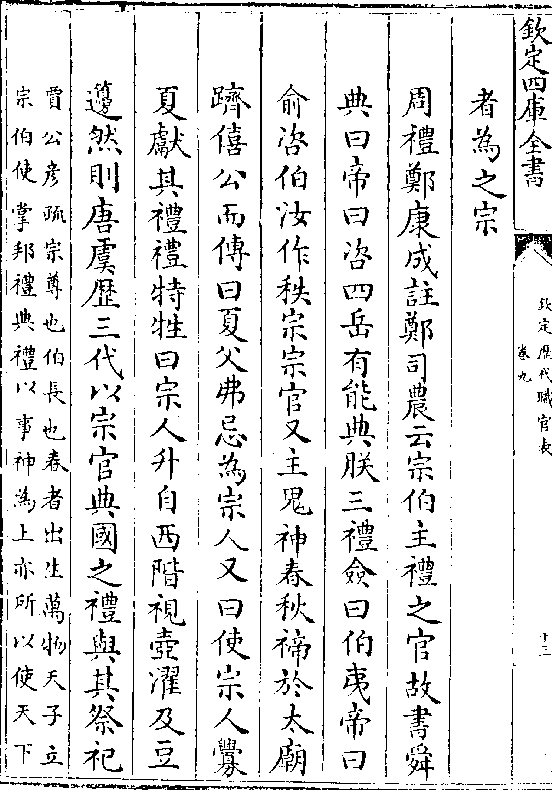 欽定四庫全書
欽定歷代職官表
卷九
十三
者為之宗
周禮鄭康成註鄭司農云宗伯主禮之官故書舜
典曰帝曰咨四岳有能典朕三禮僉曰伯夷帝曰
俞咨伯汝作秩宗宗官又主鬼神春秋禘於太廟
躋僖公而傳曰夏父弗忌為宗人又曰使宗人釁
夏獻其禮禮特牲曰宗人升自西階視壺濯及豆
籩然則唐虞歴三代以宗官典國之禮與其祭祀
賈公彦疏宗尊也伯長也春者出生萬物天子立
宗伯使掌邦禮典禮以事神為上亦所以使天下